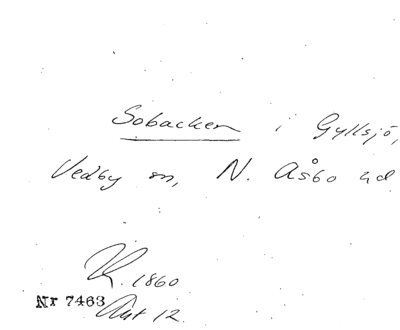 Sobacken i Gyllsjö,
Vedby sn, N. Åsbo hd
R. 1860
Nr 7463
Ant 12